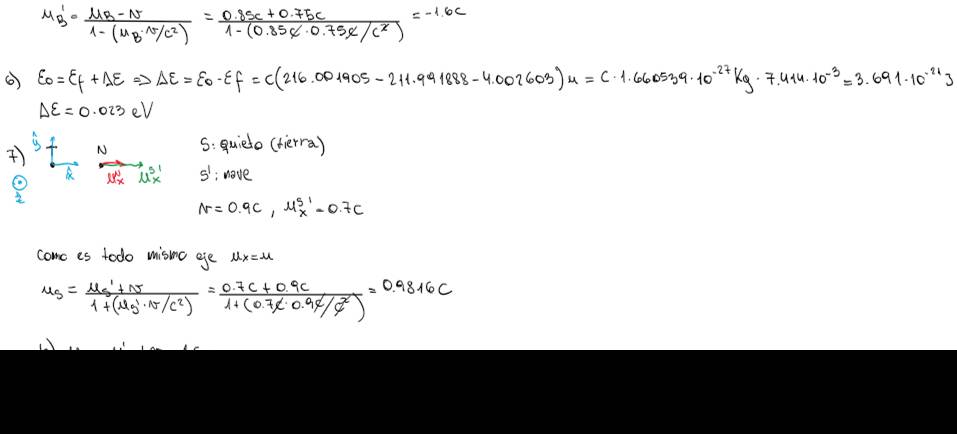 u_B' = u_B - v / 1 - (u_B · v/c²) = 0.85c + 0.75c / 1 - (0.85c · 0.75c/c²) = -1.6c
6) E₀ = E_f + ΔE ⇒ ΔE = E₀ - E_f = c(216.001905 - 211.991888 - 4.002603)u = c · 1.660539 · 10⁻²⁷ Kg · 7.414 · 10⁻³ = 3.691 · 10⁻²¹ J
ΔE = 0.023 eV
7) ŷ T x̂ ẑ N u_x^N u_x^S' S: quieto (tierra)
S': nave
v = 0.9c , u_x^S' = 0.7c
Como es todo mismo eje u_x = u
u_S = u_S' + v / 1 + (u_S' · v/c²) = 0.7c + 0.9c / 1 + (0.7c · 0.9c/c²) = 0.9816c